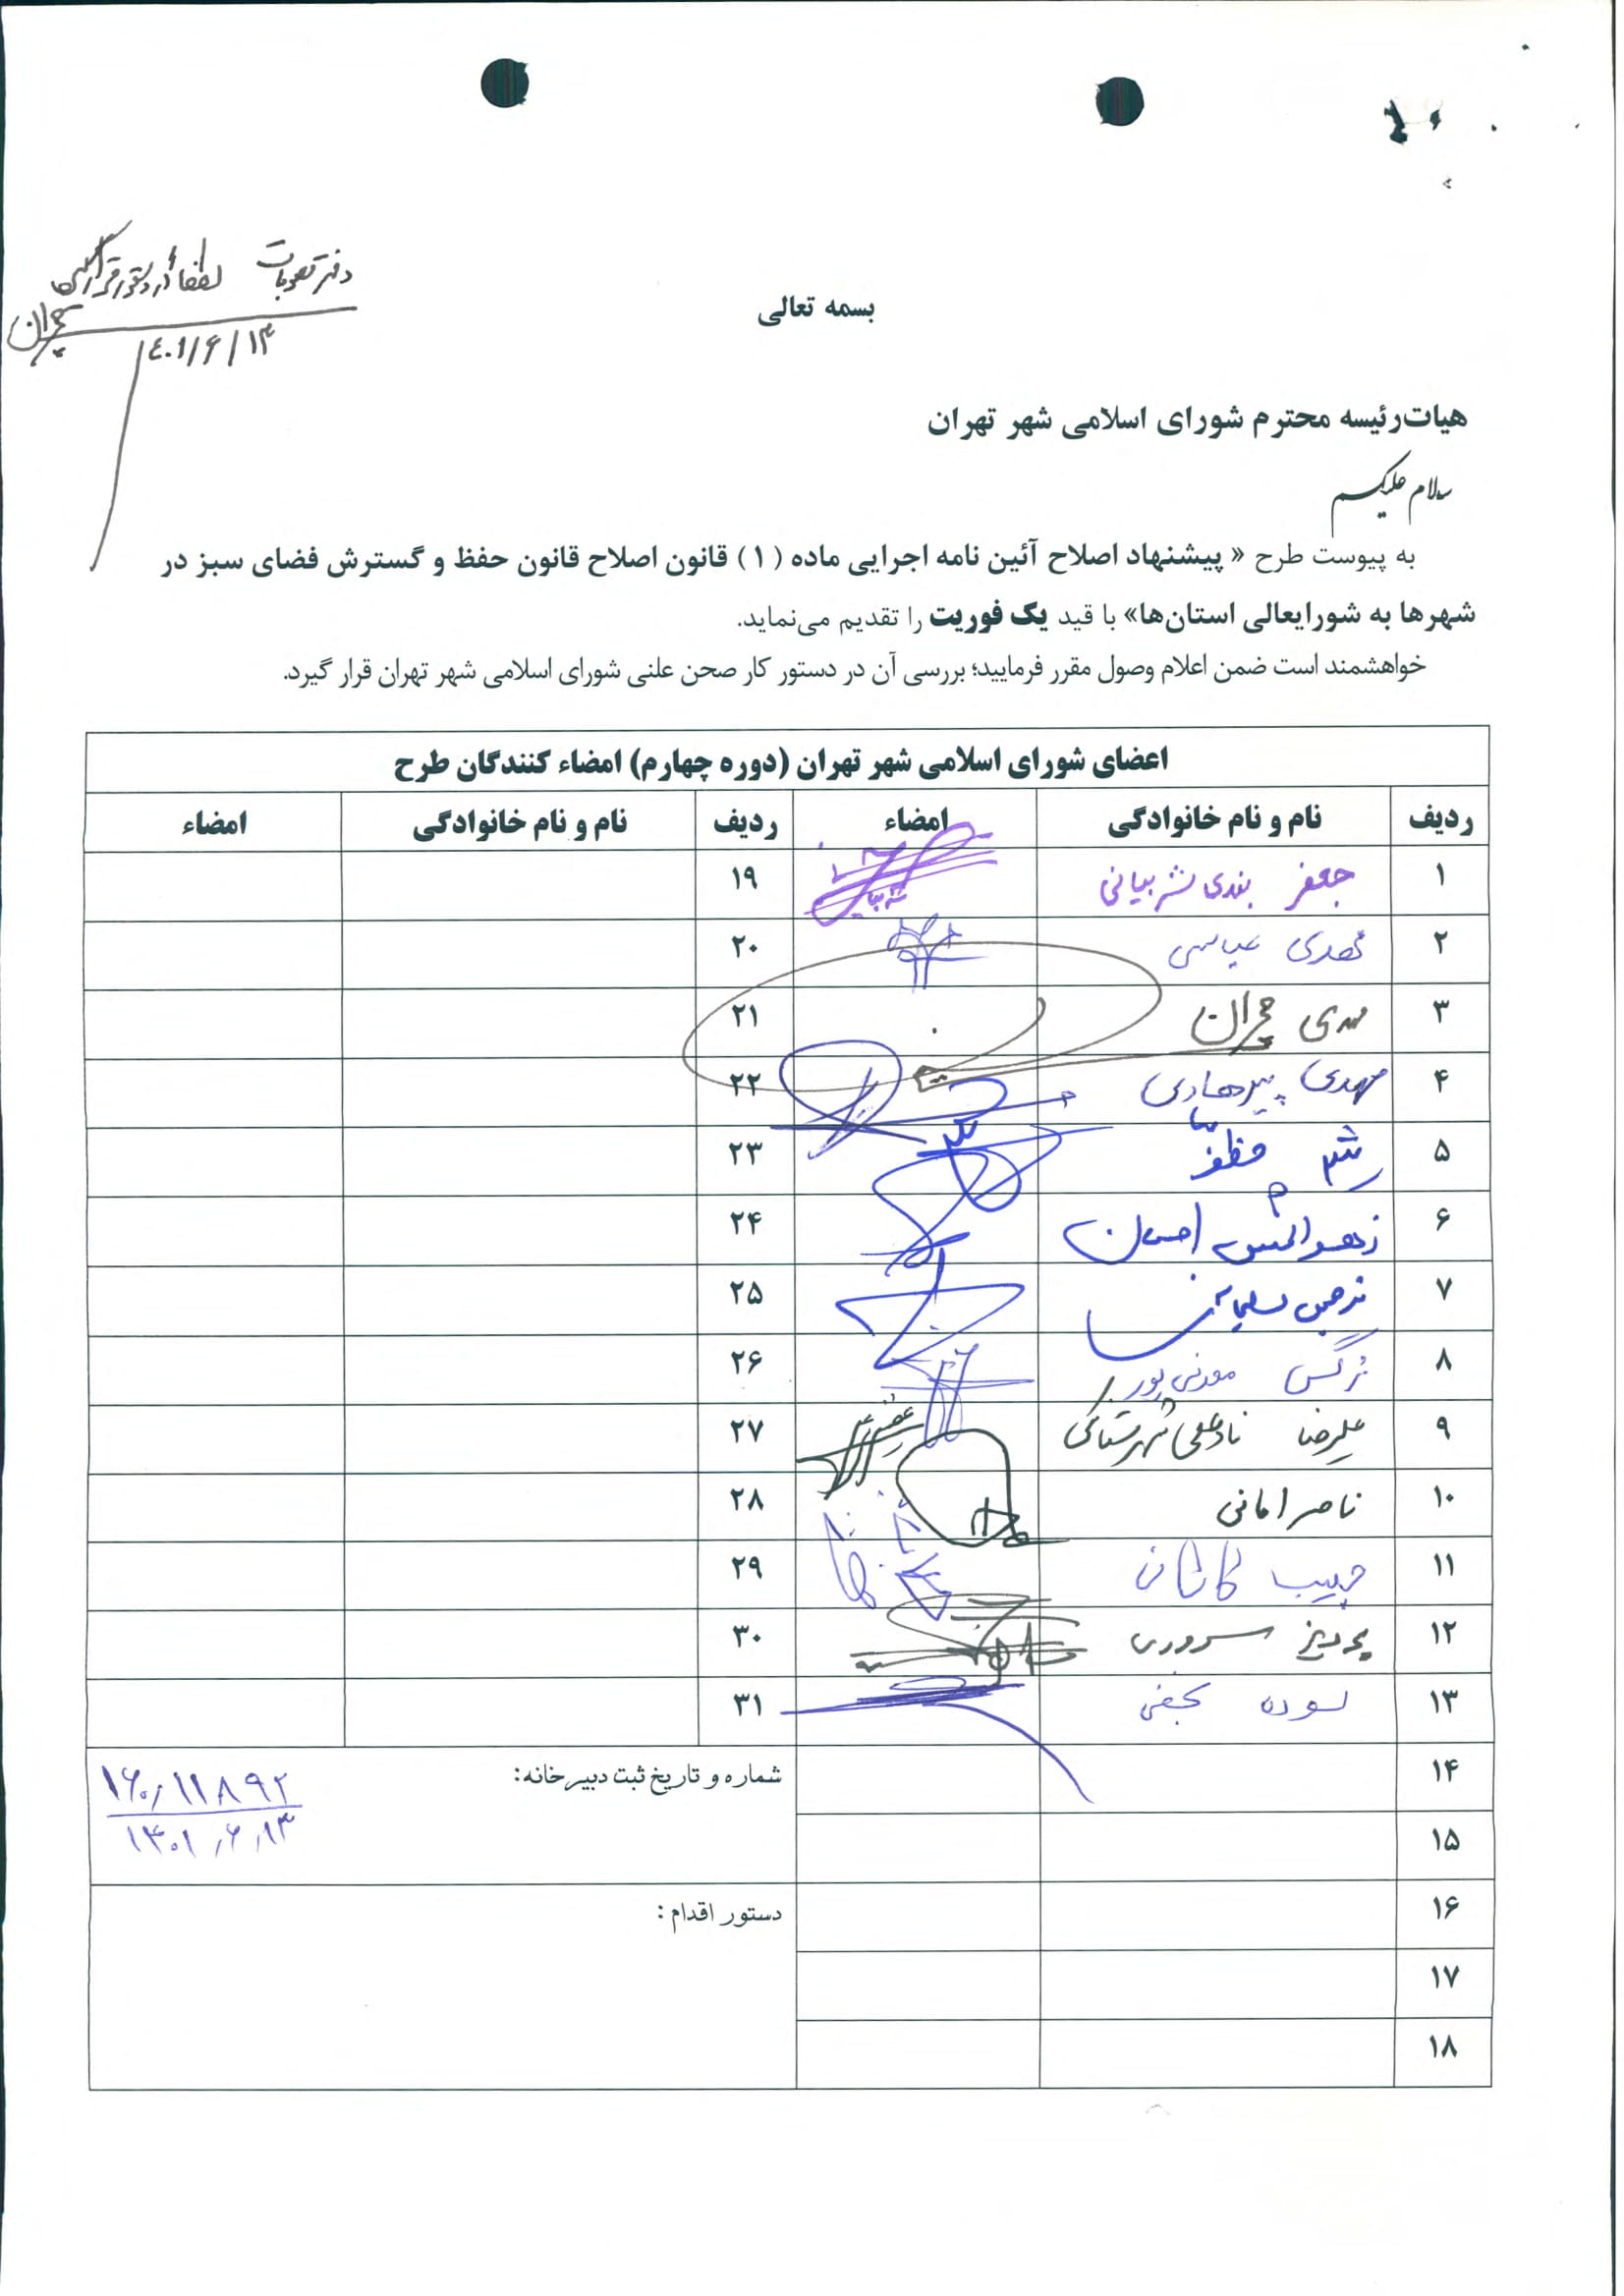 دفتر مصوبات لطفاً در دستور قرار گیرد
چمران
۱۴۰۱/۶/۱۳
بسمه تعالی
هیات‌رئیسه محترم شورای اسلامی شهر تهران
سلام علیکم
به پیوست طرح « پیشنهاد اصلاح آئین نامه اجرایی ماده (۱) قانون اصلاح قانون حفظ و گسترش فضای سبز در
شهرها به شورایعالی استان‌ها» با قید یک فوریت را تقدیم می‌نماید.
خواهشمند است ضمن اعلام وصول مقرر فرمایید؛ بررسی آن در دستور کار صحن علنی شورای اسلامی شهر تهران قرار گیرد.
اعضای شورای اسلامی شهر تهران (دوره چهارم) امضاء کنندگان طرح
ردیف نام و نام خانوادگی امضاء ردیف نام و نام خانوادگی امضاء
۱ جعفر بندی شربیانی ۱۹
۲ مهدی عباسی ۲۰
۳ مهدی چمران ۲۱
۴ مهدی پیرهادی ۲۲
۵ ۲۳
۶ زهرا شمس احسان ۲۴
۷ نرجس سلیمانی ۲۵
۸ نرگس معدنی پور ۲۶
۹ علیرضا نادعلی ۲۷
۱۰ ناصر امانی ۲۸
۱۱ حبیب کاشانی ۲۹
۱۲ پرویز سروری ۳۰
۱۳ سوده نجفی ۳۱
۱۴ شماره و تاریخ ثبت دبیرخانه: ۱۶۰/۱۱۸۹۲
۱۴۰۱/۶/۱۳
۱۵
۱۶ دستور اقدام :
۱۷
۱۸